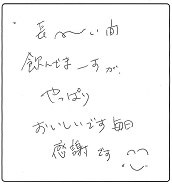 長〜い間
飲んでまーすが、
やっぱり
おいしいです毎日
感謝です